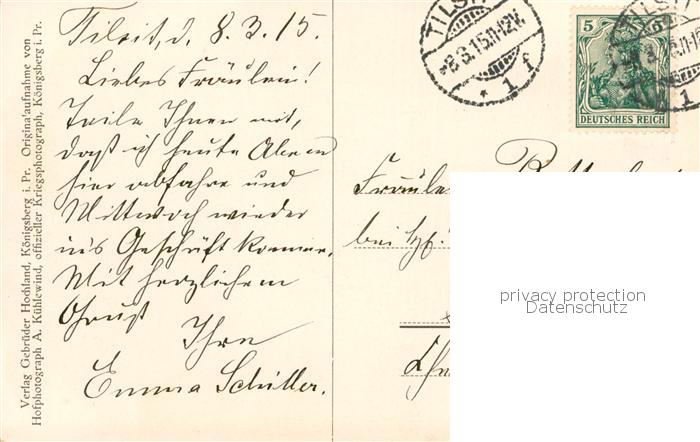 Verlag Gebrüder Hochland, Königsberg i. Pr. Originalaufnahme von
Hofphotograph A. Kühlewind, offizieller Kriegsphotograph, Königsberg i. Pr.
Tilsit, d. 8.3.15.
Liebes Fräulein!
Teile Ihnen mit,
daß ich heute Abend
hier abfahre und
Mittwoch wieder
in's Geschäft komme.
Mit herzlichem
Gruß
Ihre
Emma Schiller.
TILSIT
-8.3.15.11-12V.
* 1 f
5
DEUTSCHES REICH
TILSIT
1
Fräulein
bei
privacy protection
Datenschutz